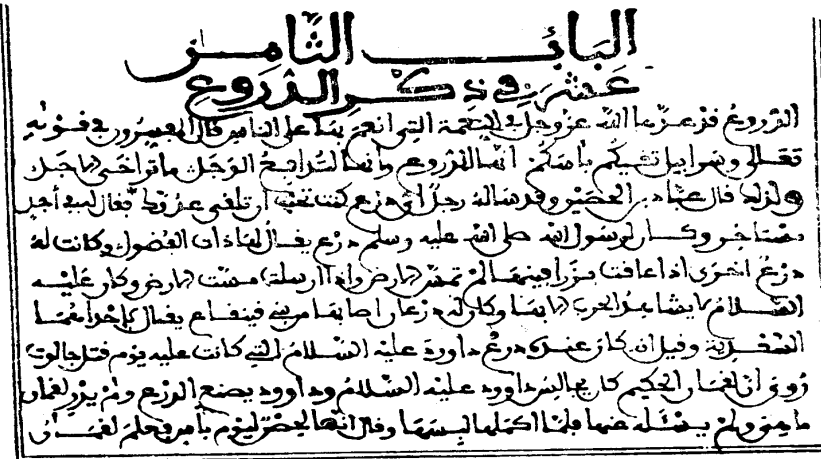 الباب الثامن
عشر في ذكر الدروع
الدروع قد عدها الله عز وجل في النعمة التي أنعم بها على الناس قال المفسرون في قوله
تعالى وسرابيل تقيكم بأسكم أنها الدروع وأنها
قال عباد بن الحصين وقد سأله رجل أي درع كنت تحب أن تلقى عدوك فقال في أجل
مستاخر وكان لرسول الله صلى الله عليه وسلم درع يقال لها ذات الفضول وكانت له
درع اخرى اذا علقت بزرافينها لم تمس الارض واذا ارسلت مست الارض وكان عليه
السلام لا يشاهد الحرب الا بها وكان له درعان اصابهما من بني فينفاع يقال لاحداهما
السغدية وقيل انه كان عنده درع داوود عليه السلام التي كانت عليه يوم قتل جالوت
روي ان لقمان الحكيم كان يجالس داوود عليه السلام وداوود يصنع الدرع ولم يدر لقمان
ما هي ولم يسئله عنها فلما اكملها لبسها وقال انها لحصن ليوم بأس فعلم لقمان